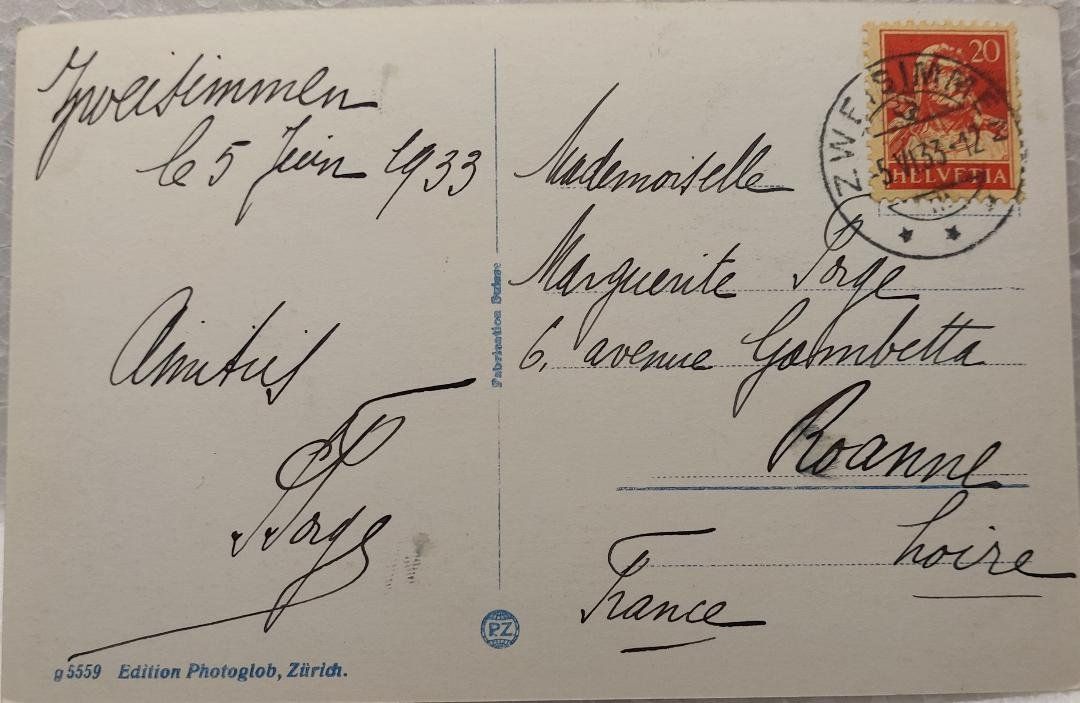 Zweisimmen
le 5 Juin 1933
Amitiés
Forge
g 5559 Edition Photoglob, Zürich.
Fabrication Suisse
PZ
20
HELVETIA
ZWEISIMMEN
-5.VI.33-12
Mademoiselle
Marguerite Forge
6, avenue Gambetta
Roanne
Loire
France